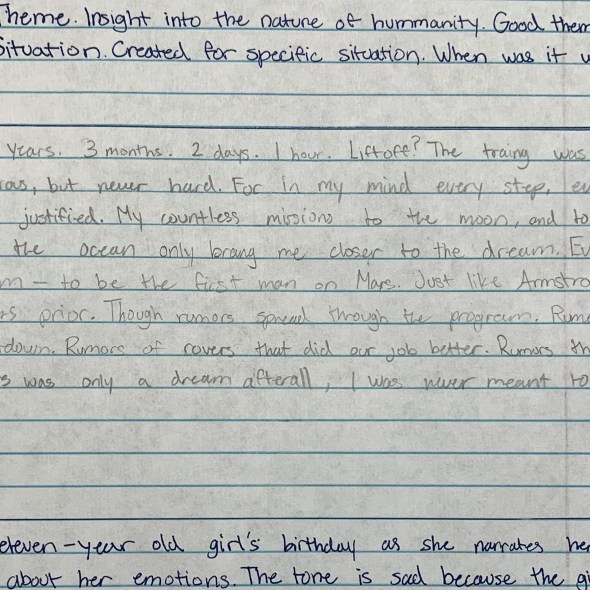 Theme. Insight into the nature of hummanity. Good them
Situation. Created for specific situation. When was it w
Years. 3 months. 2 days. 1 hour. Liftoff? The traing was
ous, but never hard. For in my mind every step, ev
justified. My countless missions to the moon, and to
the ocean only brang me closer to the dream. Ev
m – to be the first man on Mars. Just like Armstro
rs prior. Though rumors spread through the program. Rum
down. Rumors of covers that did our job better. Rumors th
s was only a dream afterall, I was never meant to
eleven-year old girl's birthday as she narrates her
about her emotions. The tone is sad because the gi